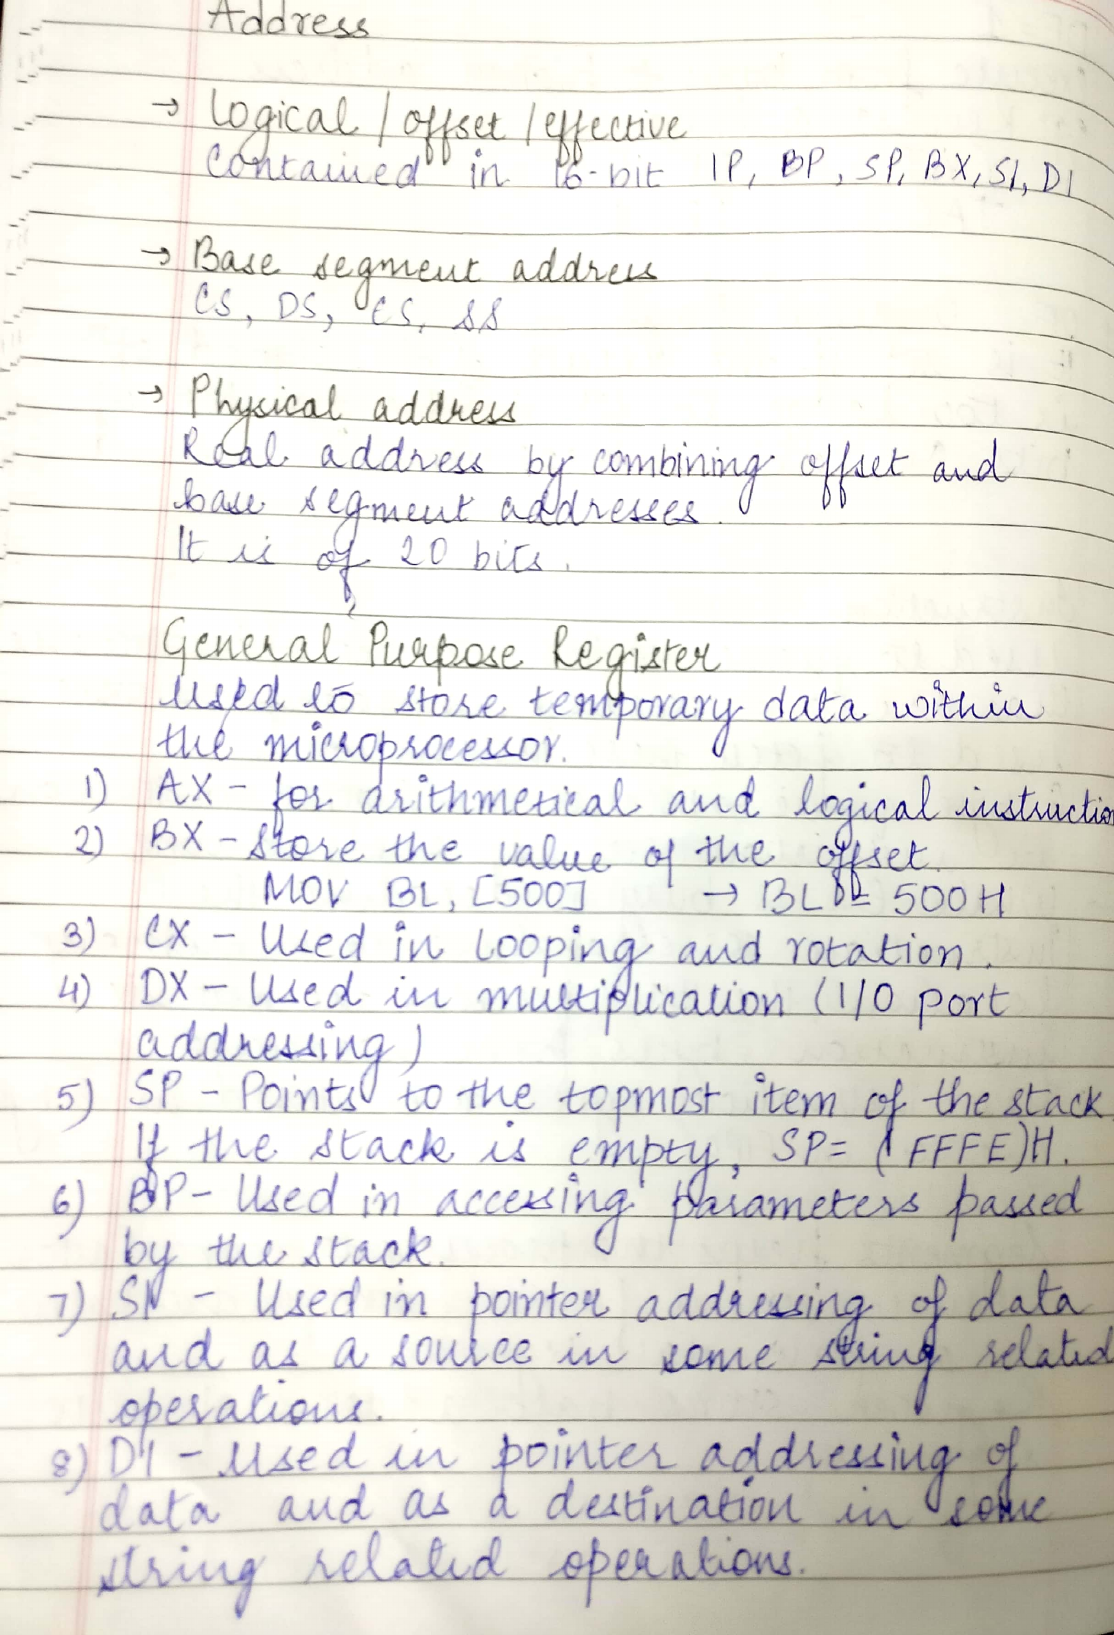 Address
→ Logical / offset / effective
Contained in 16-bit IP, BP, SP, BX, SI, DI
→ Base segment address
CS, DS, ES, SS
→ Physical address
Real address by combining offset and
base segment addresses.
It is of 20 bits.
General Purpose Register
Used to store temporary data within
the microprocessor.
1) AX - for arithmetical and logical instruction
2) BX - Store the value of the offset.
MOV BL, [500] → BL = 500H
3) CX - Used in looping and rotation.
4) DX - Used in multiplication (I/O port
addressing)
5) SP - Points to the topmost item of the stack
If the stack is empty, SP= (FFFE)H.
6) BP - Used in accessing parameters passed
by the stack.
7) SI - Used in pointer addressing of data
and as a source in some string related
operations.
8) DI - Used in pointer addressing of
data and as a destination in some
string related operations.